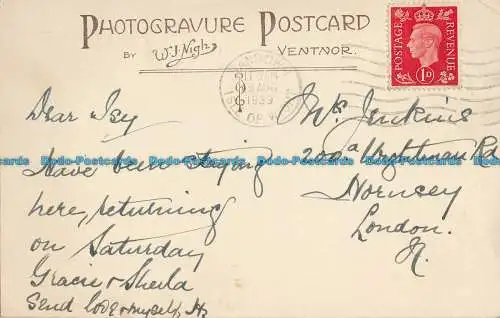 PHOTOGRAVURE POSTCARD
BY W.J. Nigh, VENTNOR.
POSTAGE REVENUE
1D
1939
Dear Ivy
Have been staying
here, returning
on Saturday
Gracie & Sheila
Send love & myself,
Mrs Jenkins
200a Wightman Rd
Hornsey
London.
N.
Bodo-Postcards Bodo-Postcards Bodo-Postcards Bodo-Postcards